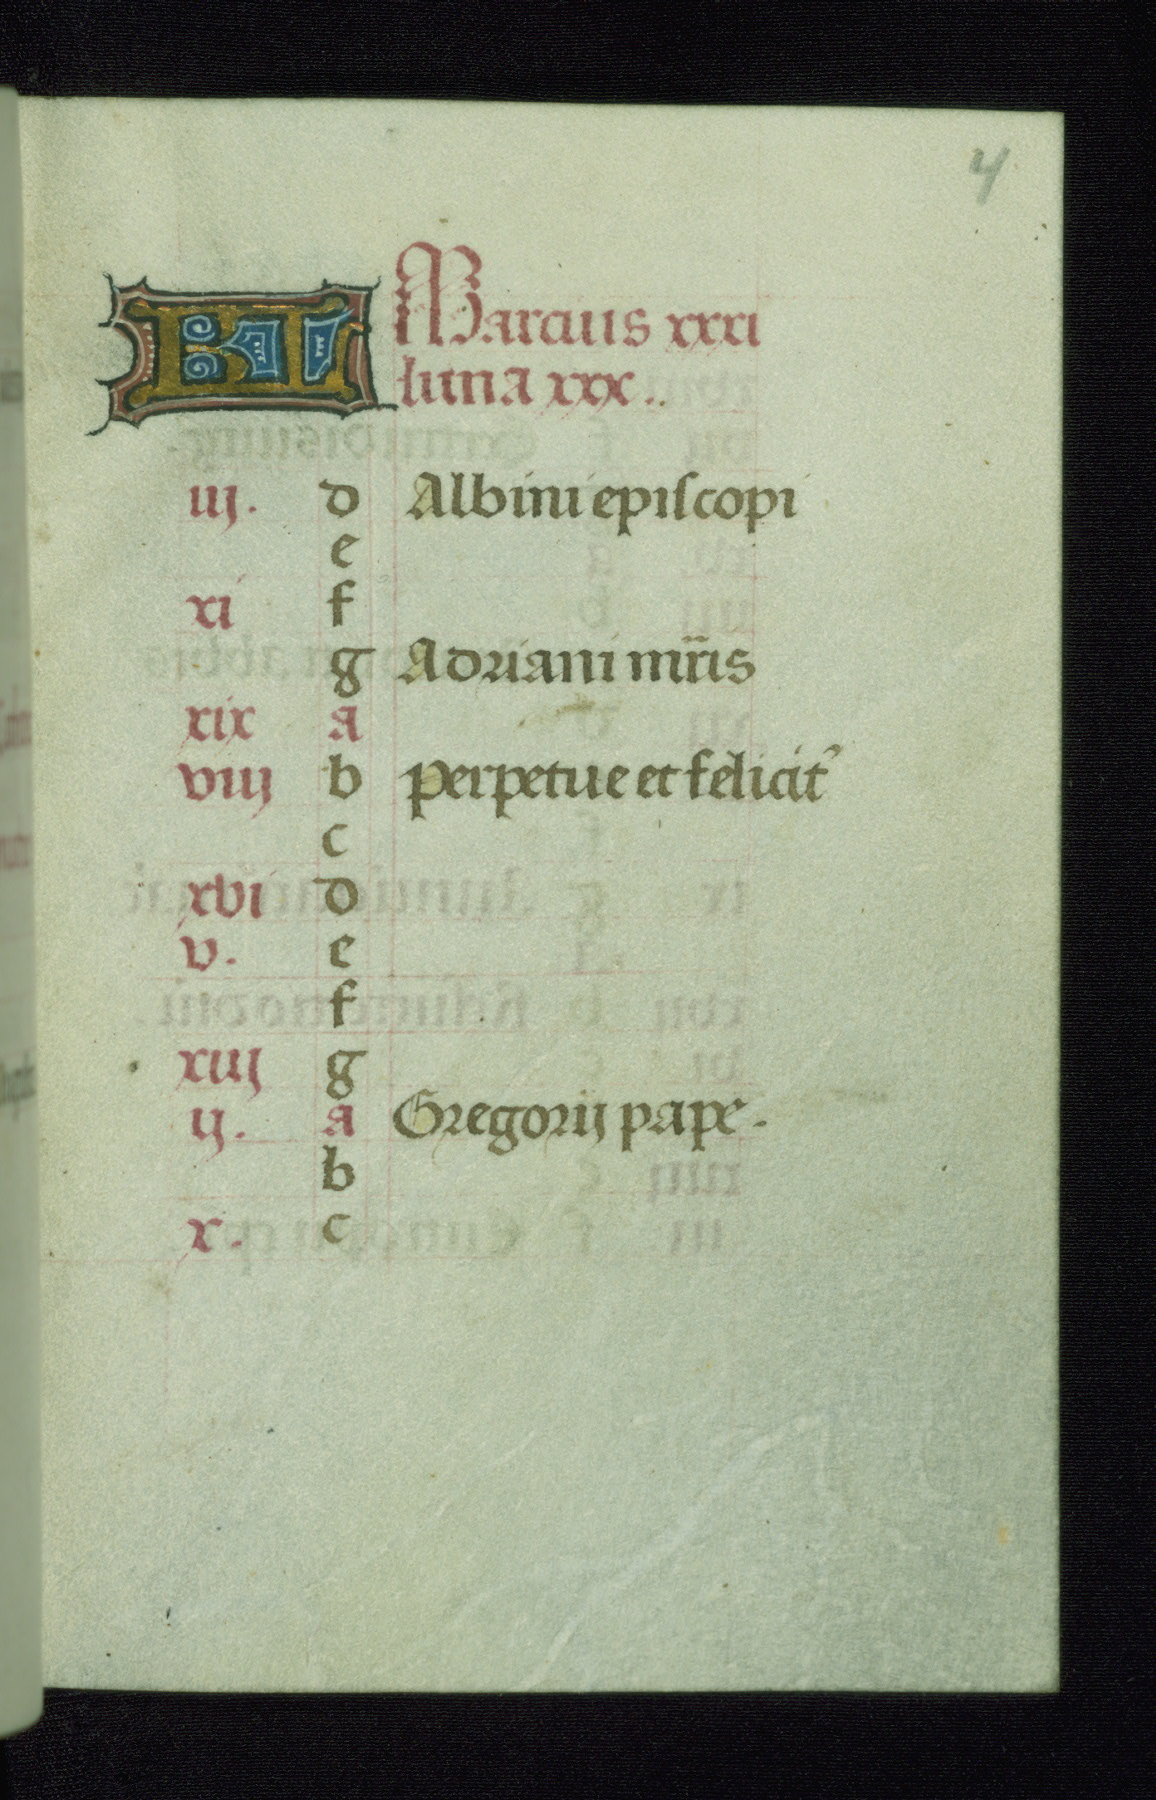 4
KL Marcius xxxi
luna xxx..
iij. d Albini episcopi
e
xi f
g Adriani mr̄is
xix a
viij b perpetue et felicit᷒
c
xvi d
v. e
f
xiij g
ij. a Gregorij pape.
b
x. c